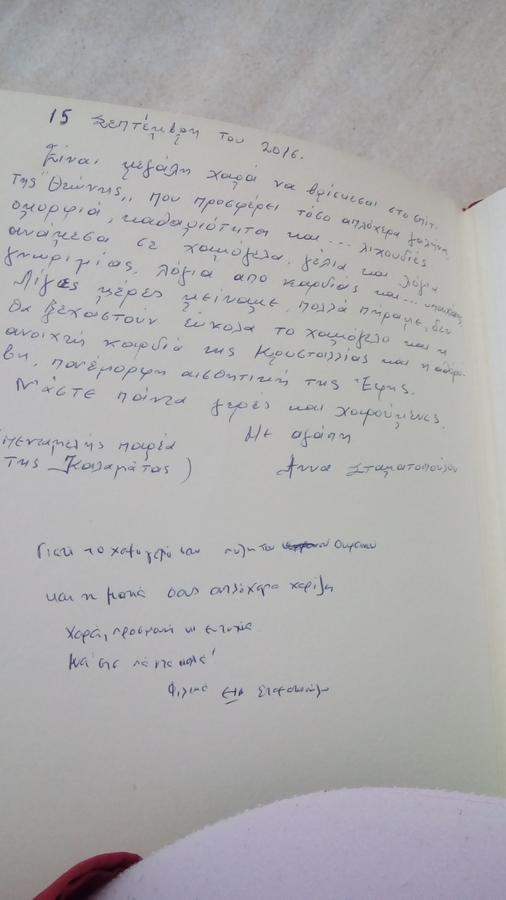 15 Σεπτέμβρη του 2016.
Είναι μεγάλη χαρά να βρίσκεσαι στο σπίτι
της "Θεώνης,, που προσφέρει τόσο απλόχερα γαλήνη,
ομορφιά, καθαριότητα και... λιχουδιές
ανάμεσα σε χαμόγελα, γέλια και λόγια
γνωριμίας, λόγια από καρδιάς και...
Λίγες μέρες μείναμε, πολλά πήραμε, δεν
θα ξεχαστούν εύκολα το χαμόγελο και η
ανοιχτή καρδιά της Κρυσταλλίας και η
πανέμορφη αισθητική της Έφης.
Νάστε πάντα γερές και χαρούμενες.
Με αγάπη
(πενταμελής παρέα
της Καλαμάτας)
Άννα Σταματοπούλου
Γιατί το χαμόγελό σας
και η ματιά σας απλόχερα χαρίζει
Χαρά, προσμονή κι ευτυχία
Νά στε πάντα καλά!
Φιλικά